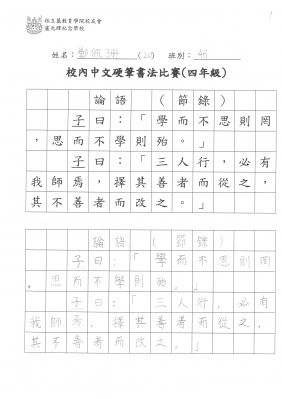 姓名：鄭佩珊 (20) 班別：4B
校內中文硬筆書法比賽(四年級)
論語（節錄）
子曰：「學而不思則罔
，思而不學則殆。」
子曰：「三人行，必有
我師焉，擇其善者而從之，
其不善者而改之。」
論語（節錄）
子曰：「學而不思則罔
。思而不學則殆。」
子曰：「三人行，必有
我師焉，擇其善者而從之，
其不善者而改之。」